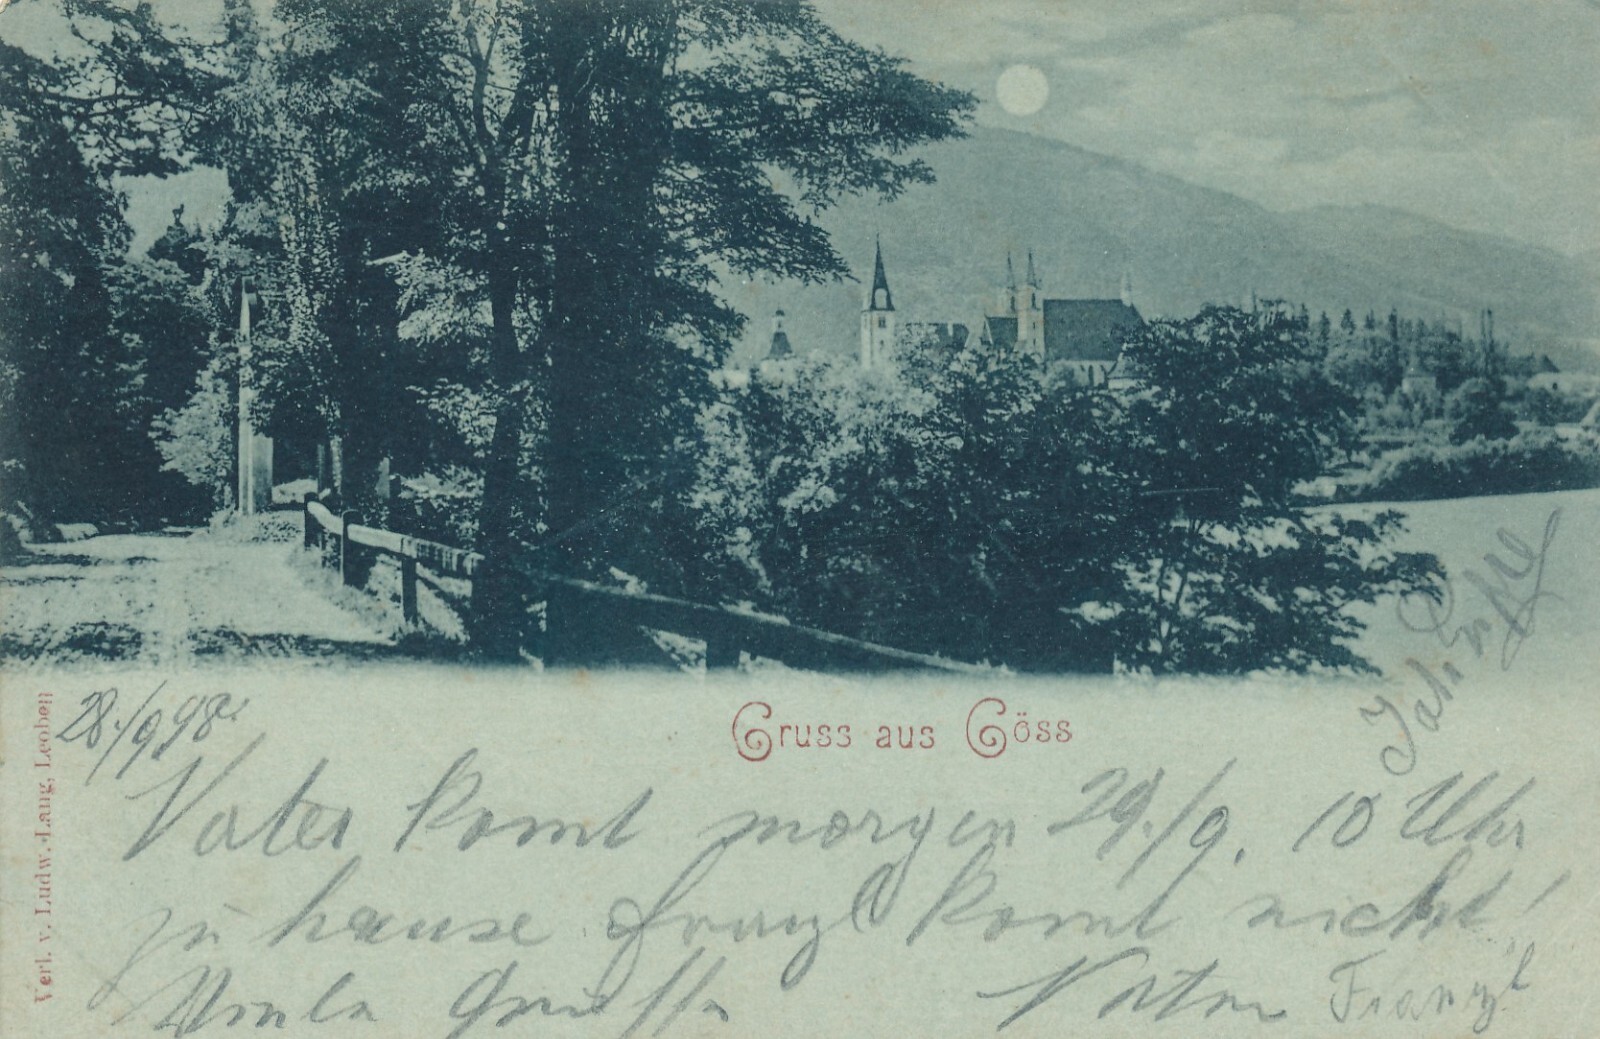 Gruss aus Göss
Verl. v. Ludw. Lang, Leoben
28./9 98.
Vater komt morgen 29./9. 10 Uhr
zu hause Franzl komt nicht!
Viele Grüsse Vater Franzl